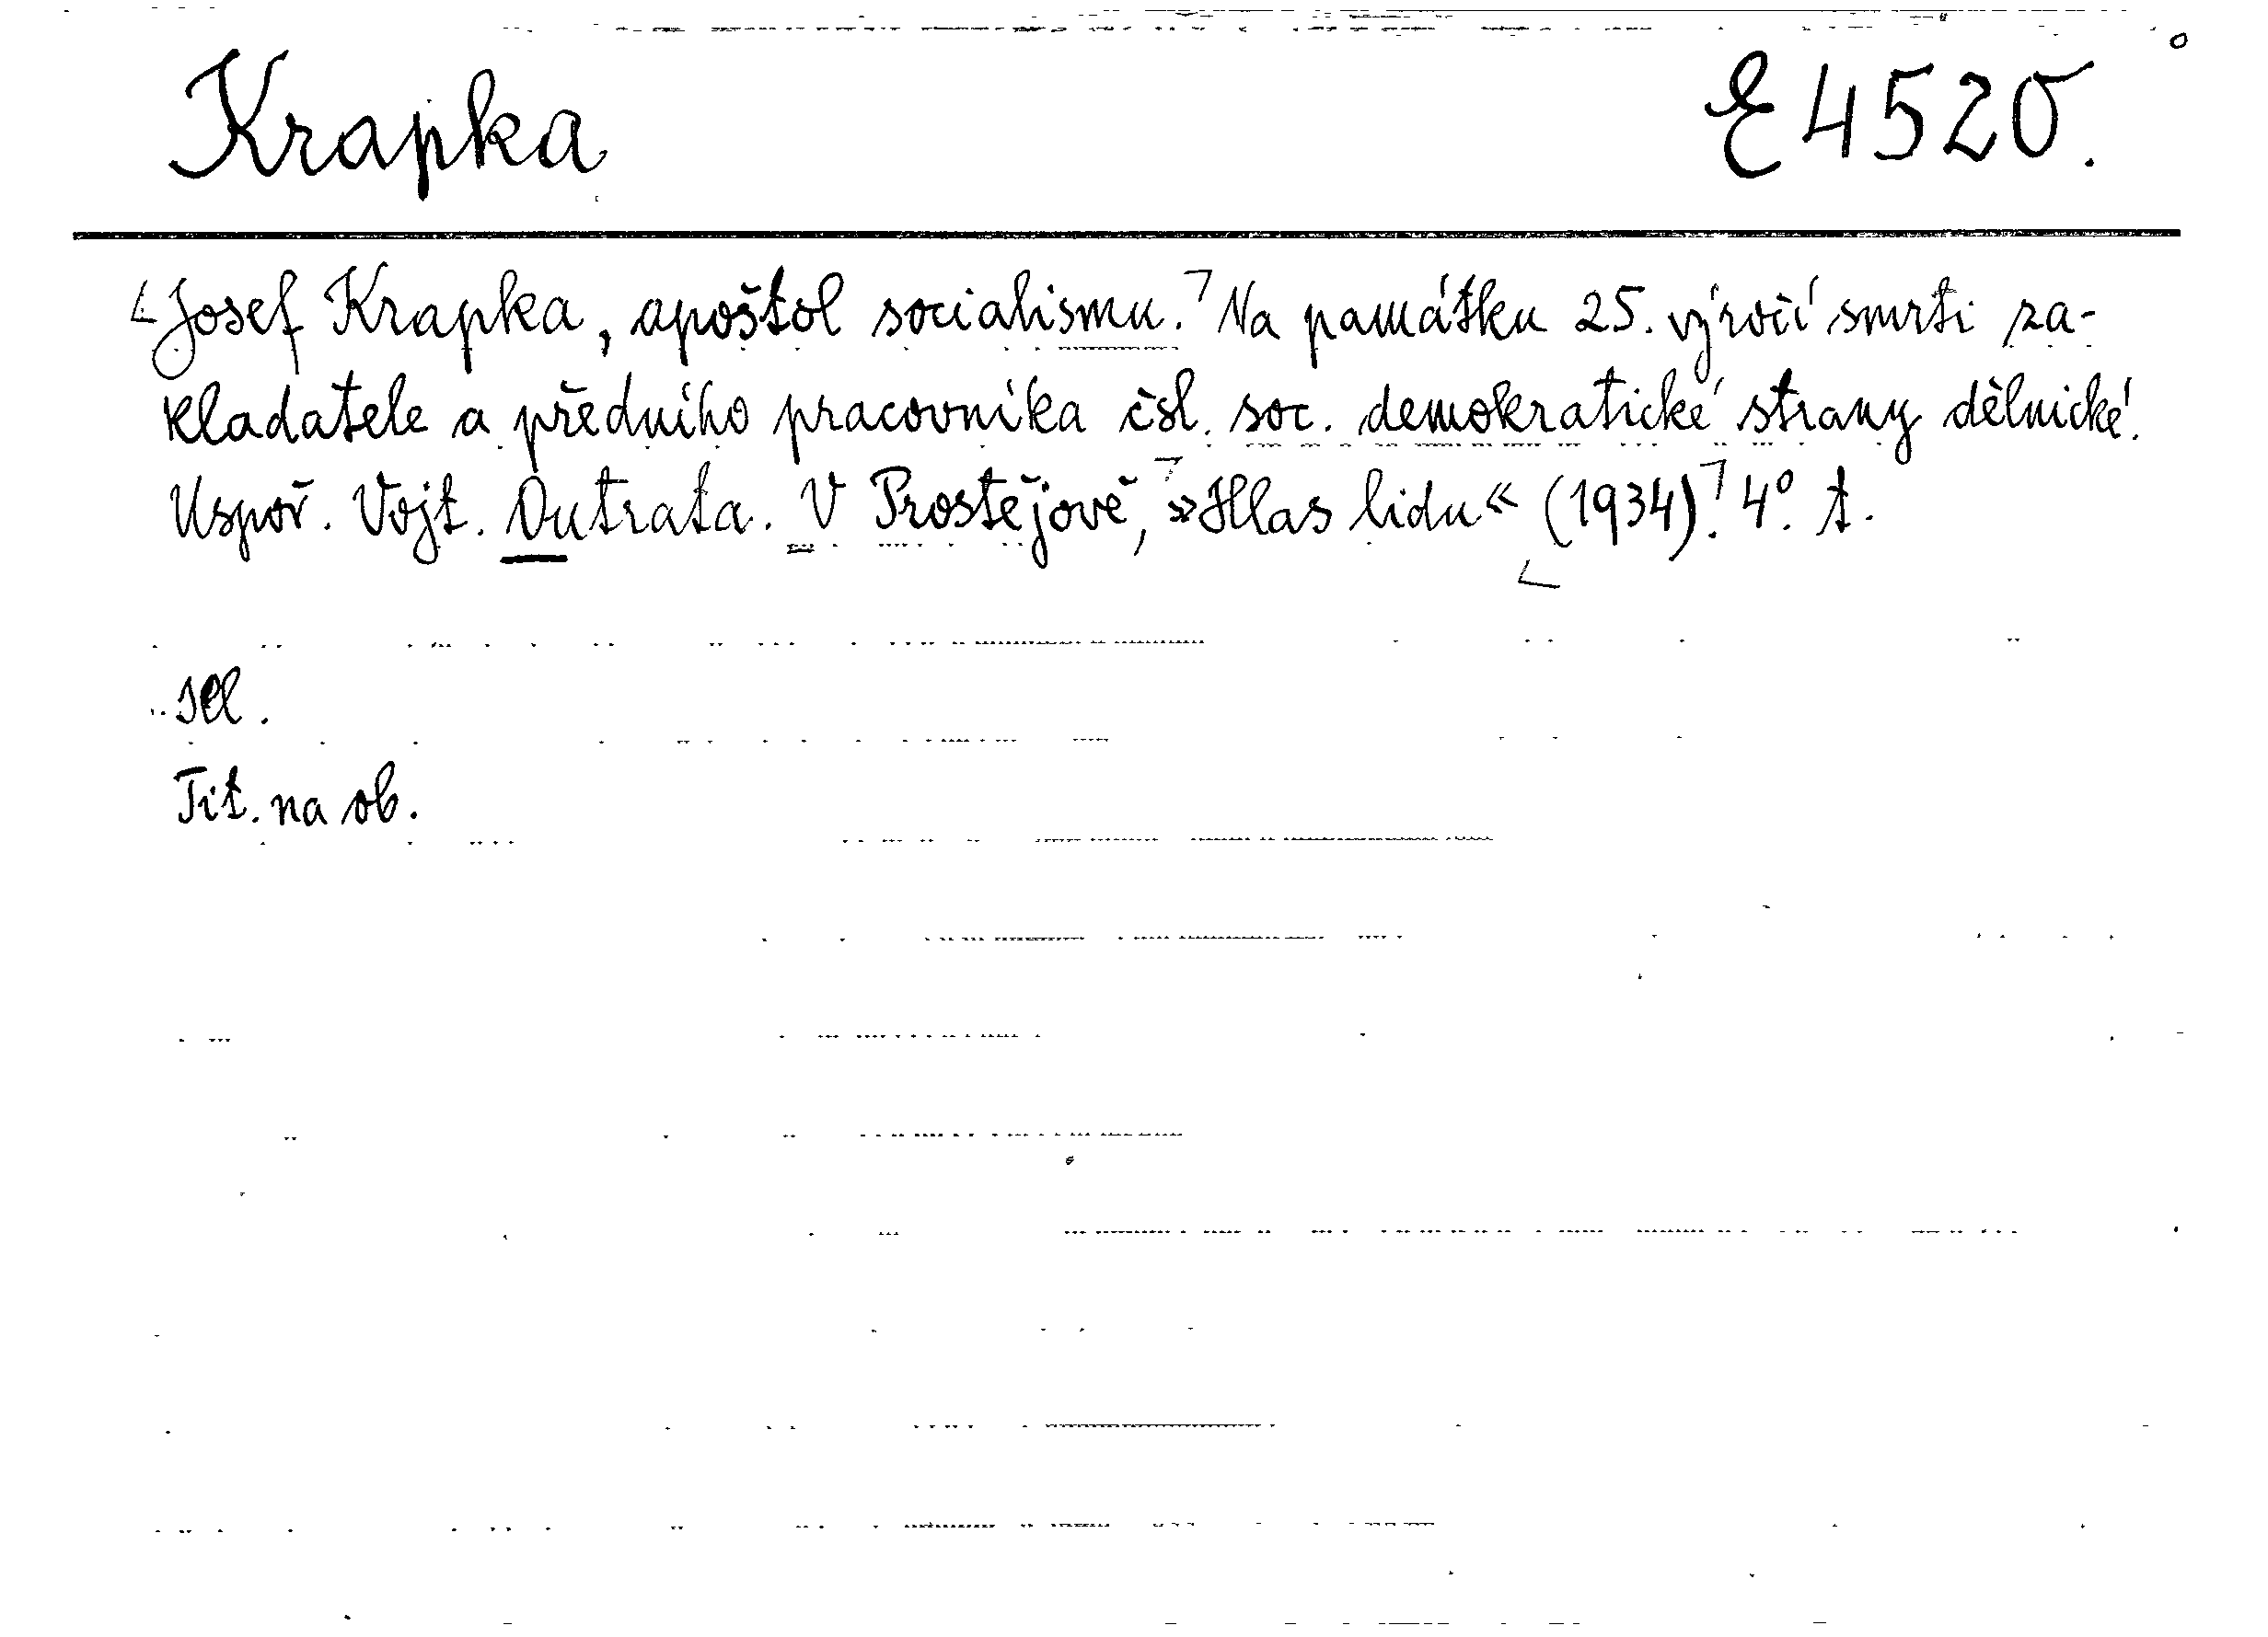 Krapka E 4520.
Josef Krapka, apoštol socialismu. Na památku 25. výročí smrti za-
kladatele a předního pracovníka čsl. soc. demokratické strany dělnické.
Uspoř. Vojt. Outrata. V Prostějově, »Hlas lidu« (1934). 4°. t.
Tit. na ob.